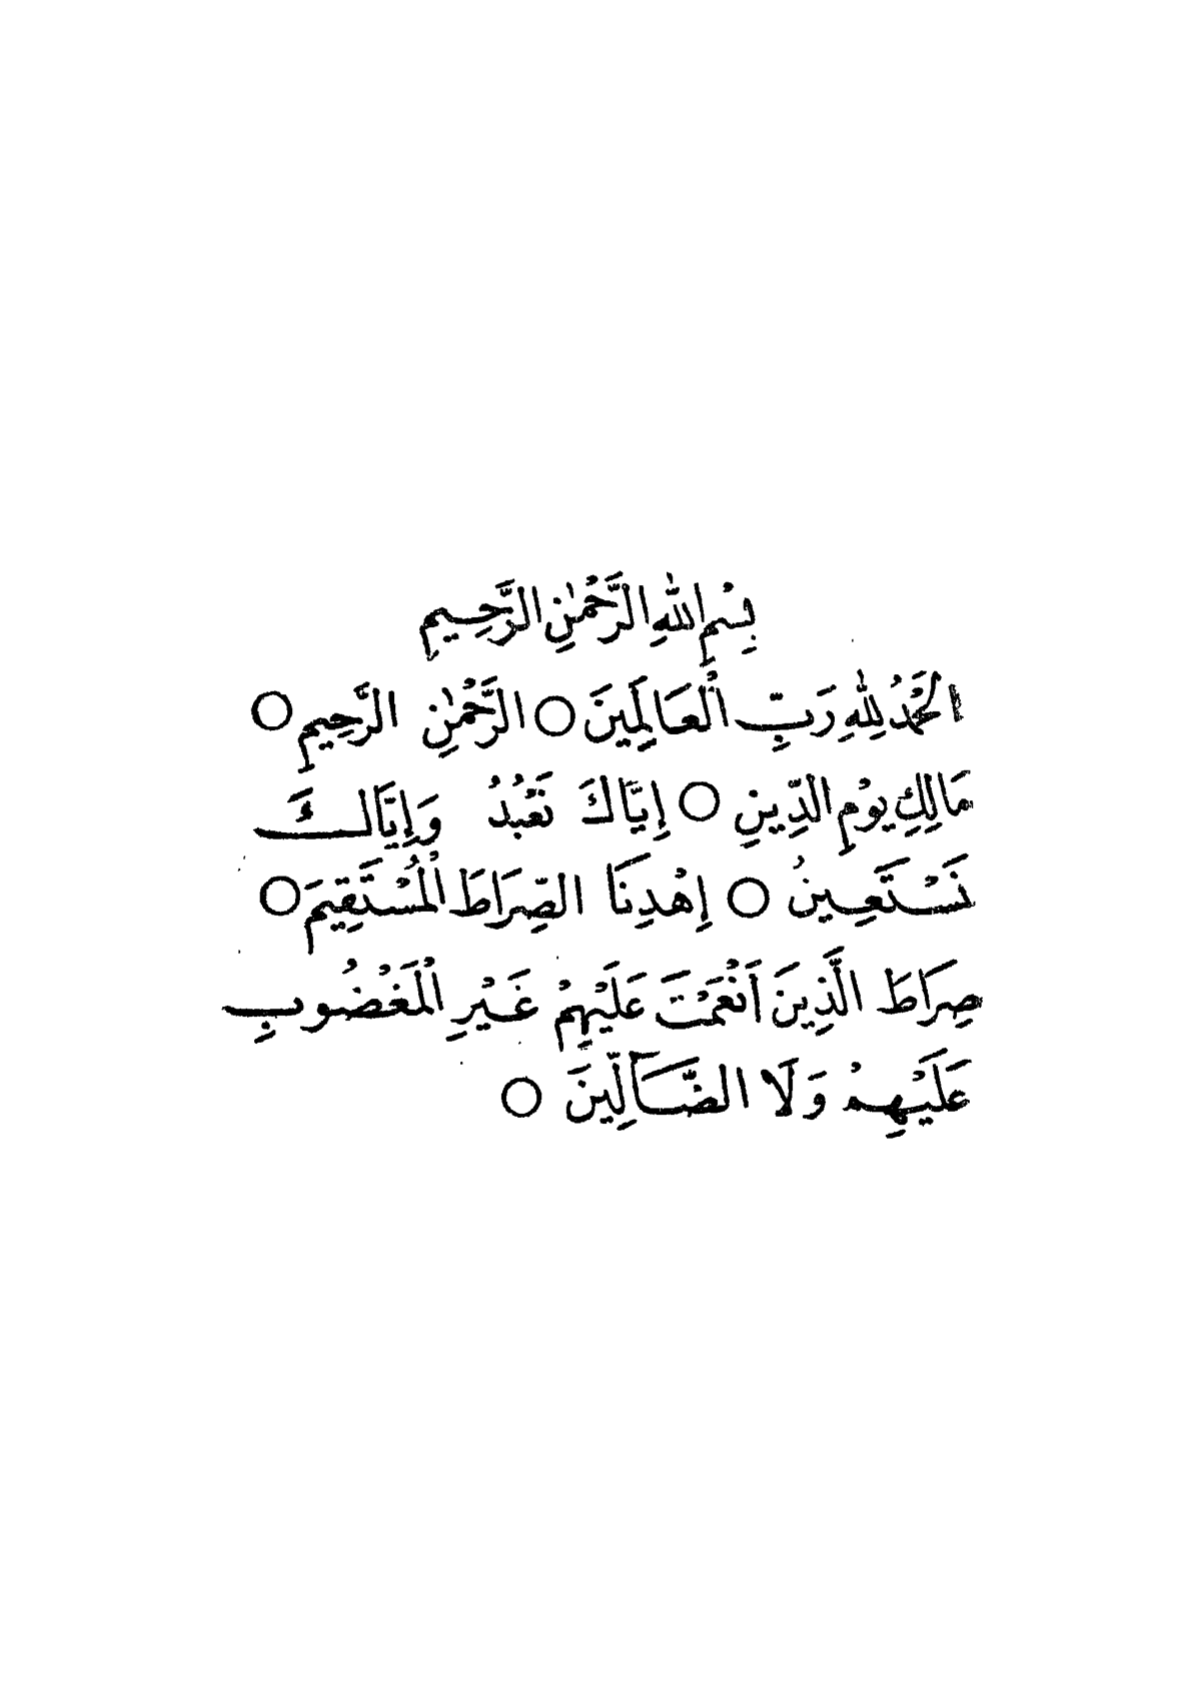 بِسْمِ اللهِ الرَّحْمٰنِ الرَّحِيمِ
الْحَمْدُ لِلّٰهِ رَبِّ الْعَالَمِينَ ○ الرَّحْمٰنِ الرَّحِيمِ ○
مَالِكِ يَوْمِ الدِّينِ ○ إِيَّاكَ نَعْبُدُ وَإِيَّاكَ
نَسْتَعِينُ ○ إِهْدِنَا الصِّرَاطَ الْمُسْتَقِيمَ ○
صِرَاطَ الَّذِينَ أَنْعَمْتَ عَلَيْهِمْ غَيْرِ الْمَغْضُوبِ
عَلَيْهِمْ وَلَا الضَّالِّينَ ○